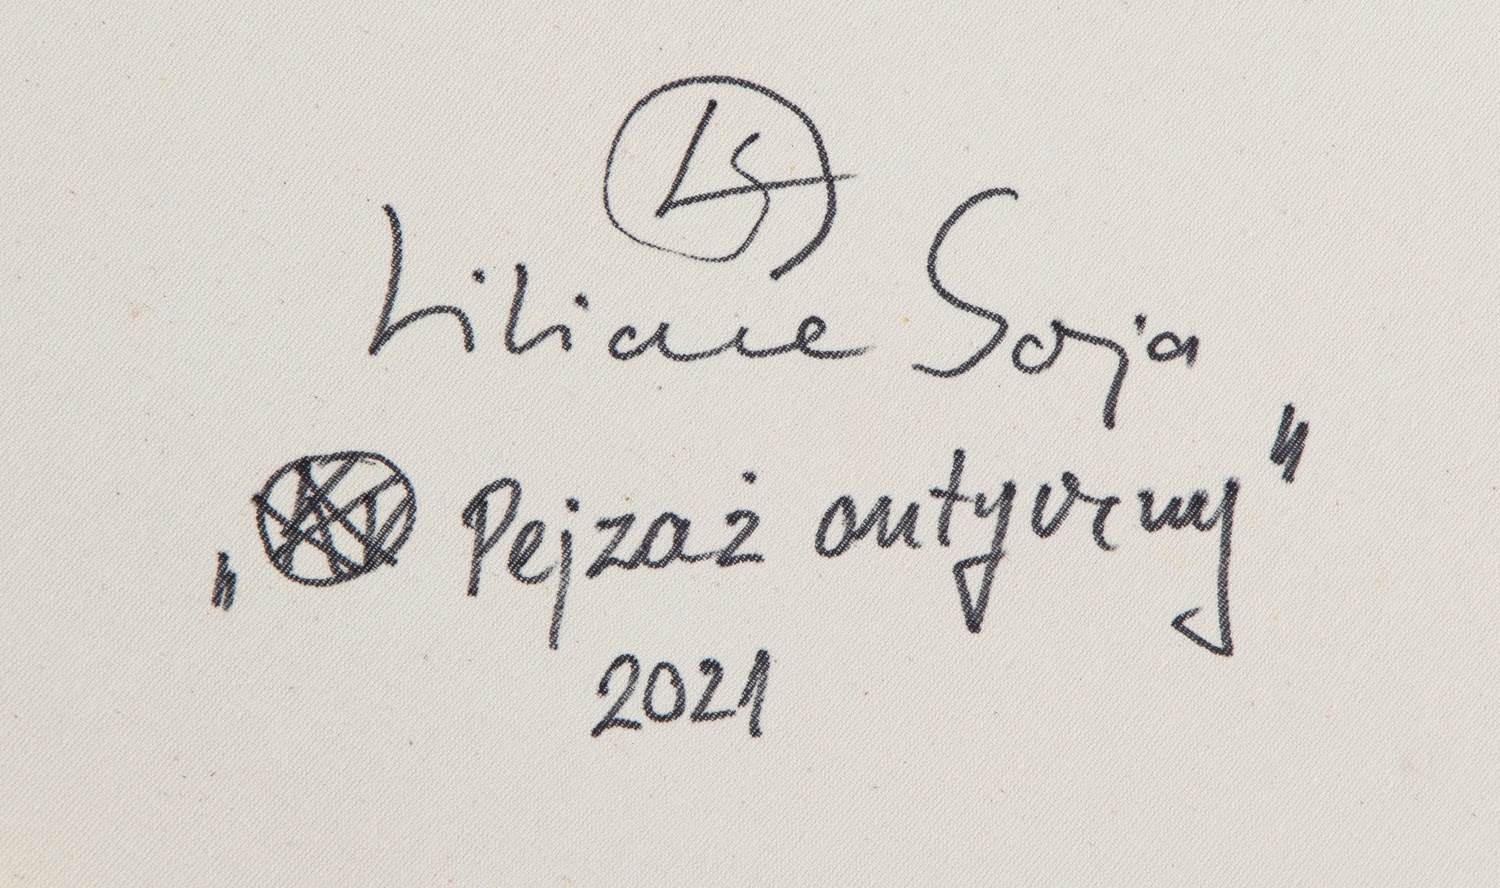 LS
Liliane Soja
„ Pejzaż antyczny"
2021